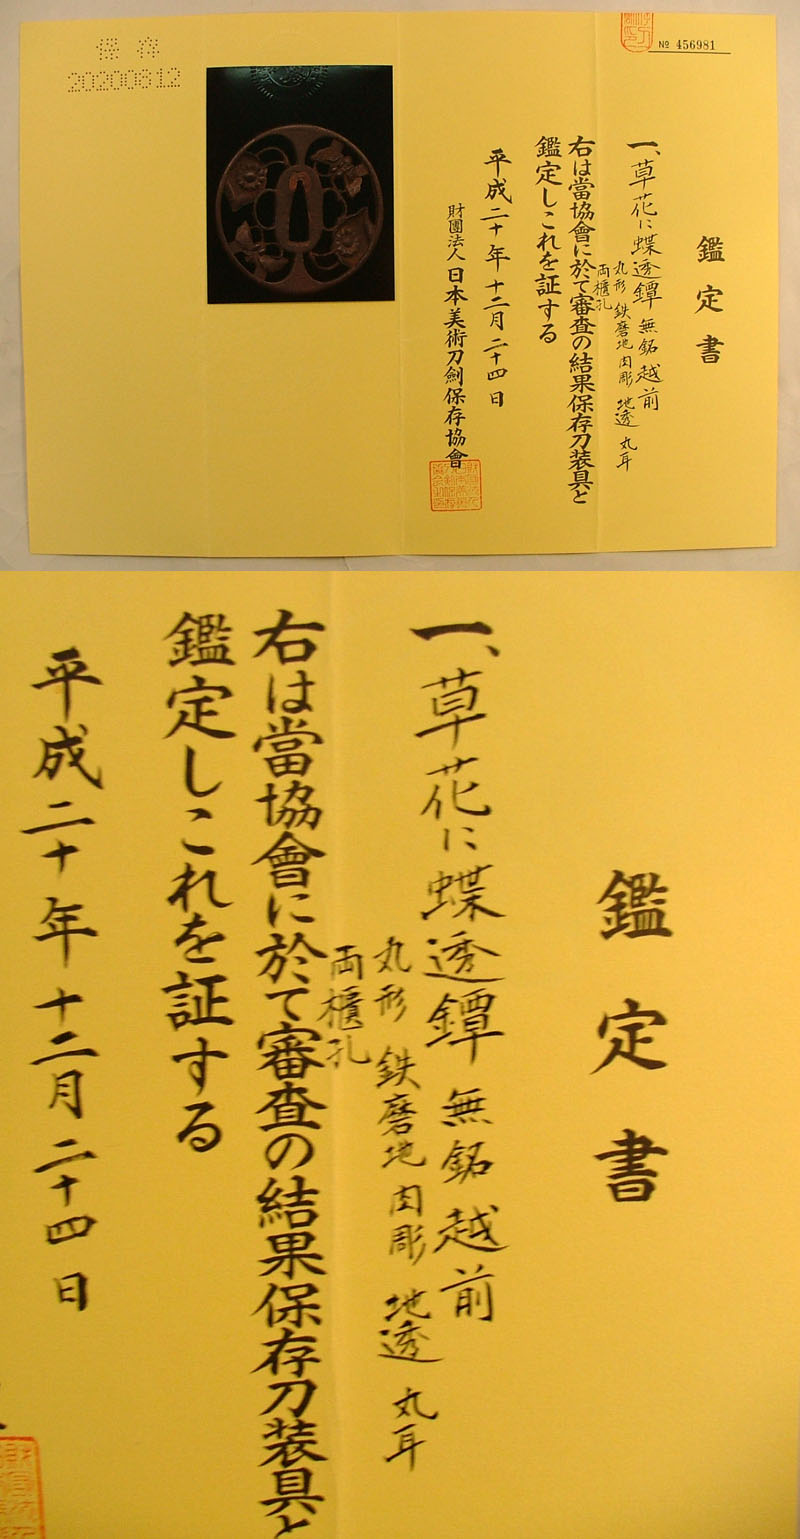 保存
20200812
№ 456981
鑑定書
一、草花に蝶透鐔 無銘 越前
丸形 鉄磨地 肉彫 地透 丸耳
両櫃孔
右は當協會に於て審査の結果保存刀装具と
鑑定しこれを証する
平成二十年十二月二十四日
財團法人 日本美術刀劍保存協會
鑑定書
一、草花に蝶透鐔 無銘 越前
丸形 鉄磨地 肉彫 地透 丸耳
両櫃孔
右は當協會に於て審査の結果保存刀装具と
鑑定しこれを証する
平成二十年十二月二十四日